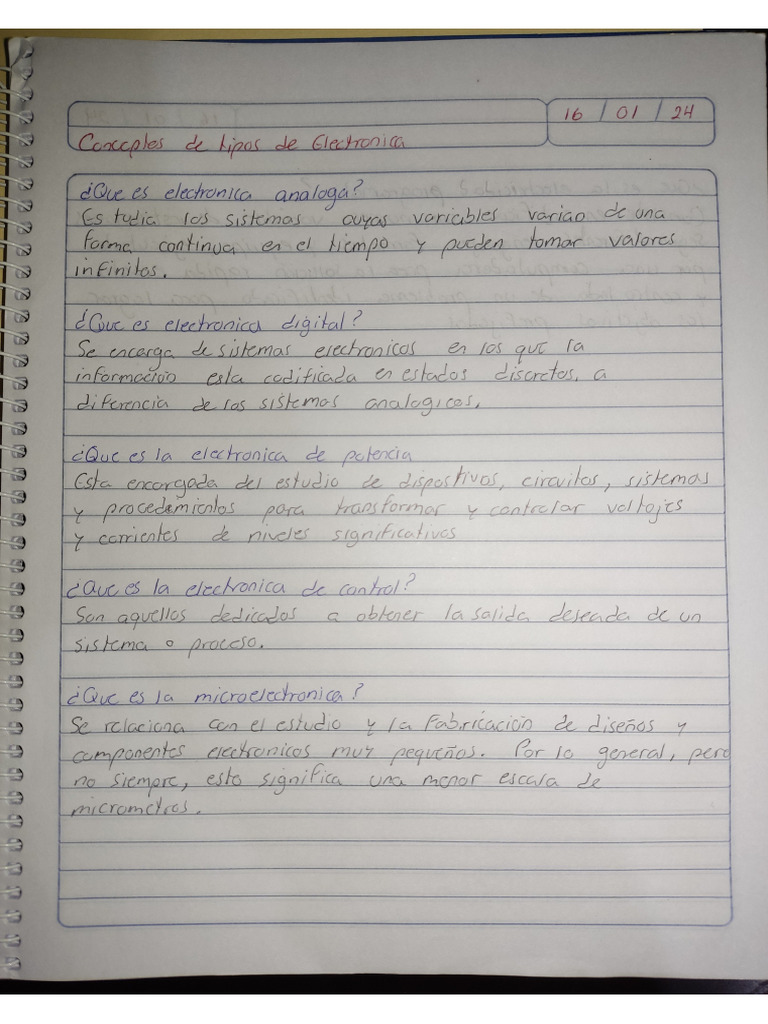 16 / 01 / 24
Conceptos de tipos de Electronica
¿Que es electronica analoga?
Estudia los sistemas cuyas variables varian de una
forma continua en el tiempo y pueden tomar valores
infinitos.
¿Que es electronica digital?
Se encarga de sistemas electronicos en los que la
información esta codificada en estados discretos, a
diferencia de los sistemas analogicos.
¿Que es la electronica de potencia
Esta encargada del estudio de dispostivos, circuitos, sistemas
y procedemientos para transformar y controlar voltajes
y corrientes de niveles significativos
¿Que es la electronica de control?
Son aquellos dedicados a obtener la salida deseada de un
sistema o proceso.
¿Que es la microelectronica?
Se relaciona con el estudio y la Fabricación de diseños y
componentes electronicos muy pequeños. Por lo general, pero
no siempre, esto significa una menor escala de
micrometros.